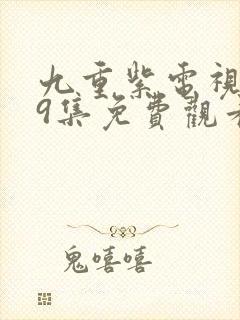 九重紫電視
9集免費觀
鬼嘻嘻